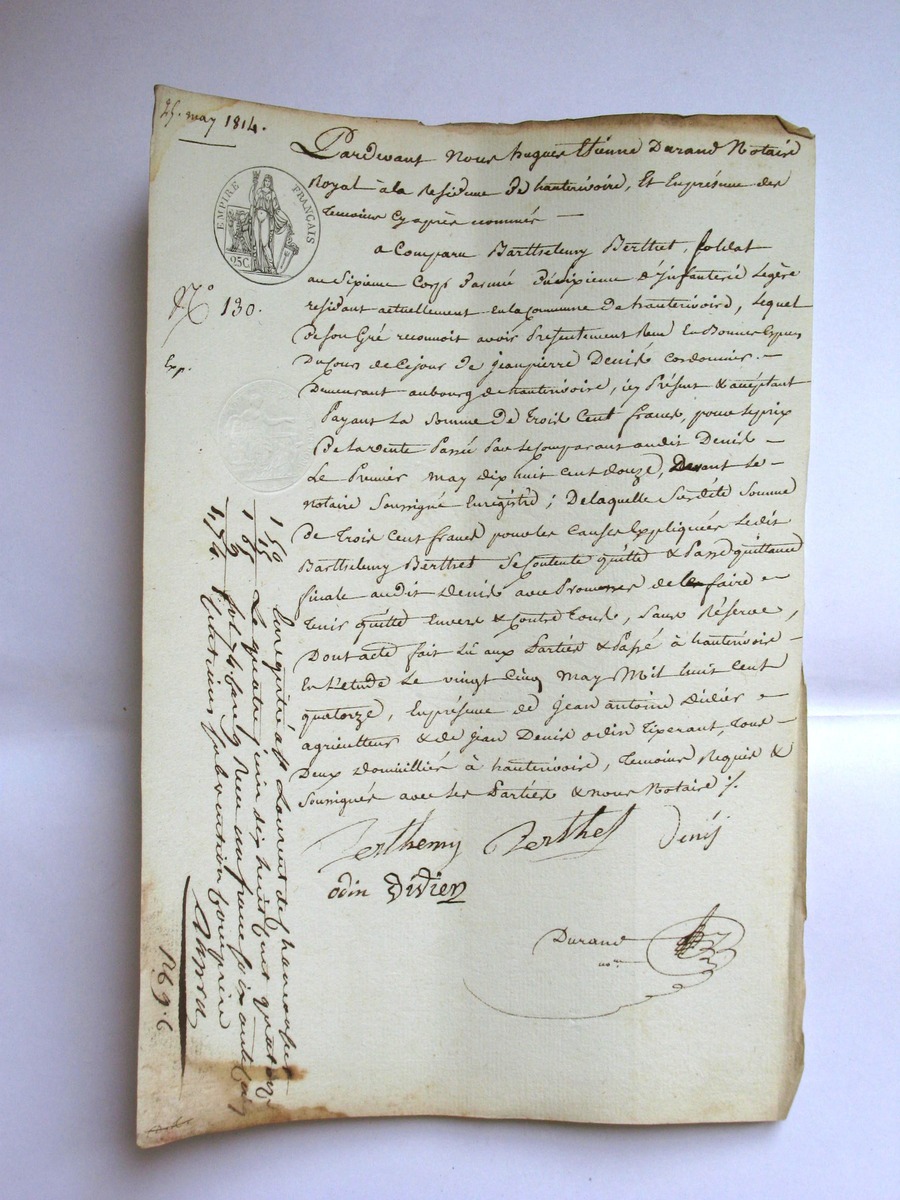 25. may 1814.
EMPIRE FRANÇAIS
25C
N.° 130.
Exp.
Pardevant Nous hugues Etienne Durand Notaire
Royal à la Residence de hauterivoire, Et En présence des
temoins Cy après nommés —
a Comparu Barthelemy Berthet, soldat
au Sixieme Corps d'armée Dixieme d'Infanterie Legère
residant actuellement en la Commune de hauterivoire, Lequel
de son Gré reconnoit avoir Présentement Reçu En Bonnes Especes
Du Cours de Ce jour de jean pierre Denis Cordonnier. —
Demeurant au bourg de hauterivoire, icy Présent & acceptant
Payant La Somme De trois Cent francs, pour le prix
De La vente Passée Par le Comparant audit Denis —
Le Premier may dix huit cent douze, Devant Le —
notaire Soussigné Enregistré; De laquelle Susdite Somme
De trois Cent francs pour les Causes Expliquées Ledit
Barthelemy Berthet Se Contente quitte & Passe quittance
finale audit Denis avec Promesse de le faire —
tenir quitte Envers & Contre tous, Sans Réserve,
Dont acte fait Lû aux Parties & Passé à hauterivoire —
En L'etude Le vingt Cinq may Mil huit Cent
quatorze, En présence de jean antoine Didier —
agriculteur & de jean Denis odin tixerant, tous —
Deux Domicilliés à hauterivoire, temoins Requis &
Soussignés avec les Parties & nous Notaire ./.
Berthemy Berthet Denis
odin Didier
Durand
n.re
Enregistré a St Laurent de chamousset
Le quatre juin dix huit Cent quatorze
fol. Reçu un franc
subvention Comprise
1 50
15
1 65